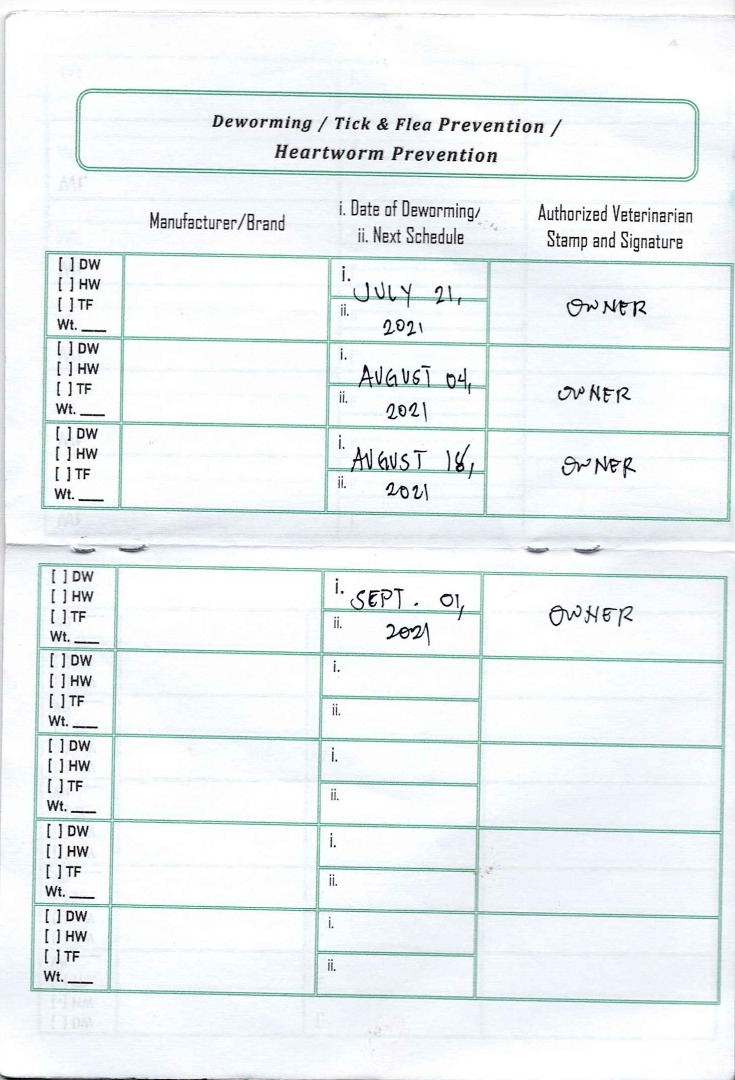 Deworming / Tick & Flea Prevention /
Heartworm Prevention
Manufacturer/Brand
i. Date of Deworming/
ii. Next Schedule
Authorized Veterinarian
Stamp and Signature
[ ] DW
[ ] HW
[ ] TF
Wt. ___
i. JULY 21,
ii. 2021
OWNER
[ ] DW
[ ] HW
[ ] TF
Wt. ___
i. AUGUST 04,
ii. 2021
OWNER
[ ] DW
[ ] HW
[ ] TF
Wt. ___
i. AUGUST 18,
ii. 2021
OWNER
[ ] DW
[ ] HW
[ ] TF
Wt. ___
i. SEPT. 01,
ii. 2021
OWNER
[ ] DW
[ ] HW
[ ] TF
Wt. ___
i.
ii.
[ ] DW
[ ] HW
[ ] TF
Wt. ___
i.
ii.
[ ] DW
[ ] HW
[ ] TF
Wt. ___
i.
ii.
[ ] DW
[ ] HW
[ ] TF
Wt. ___
i.
ii.